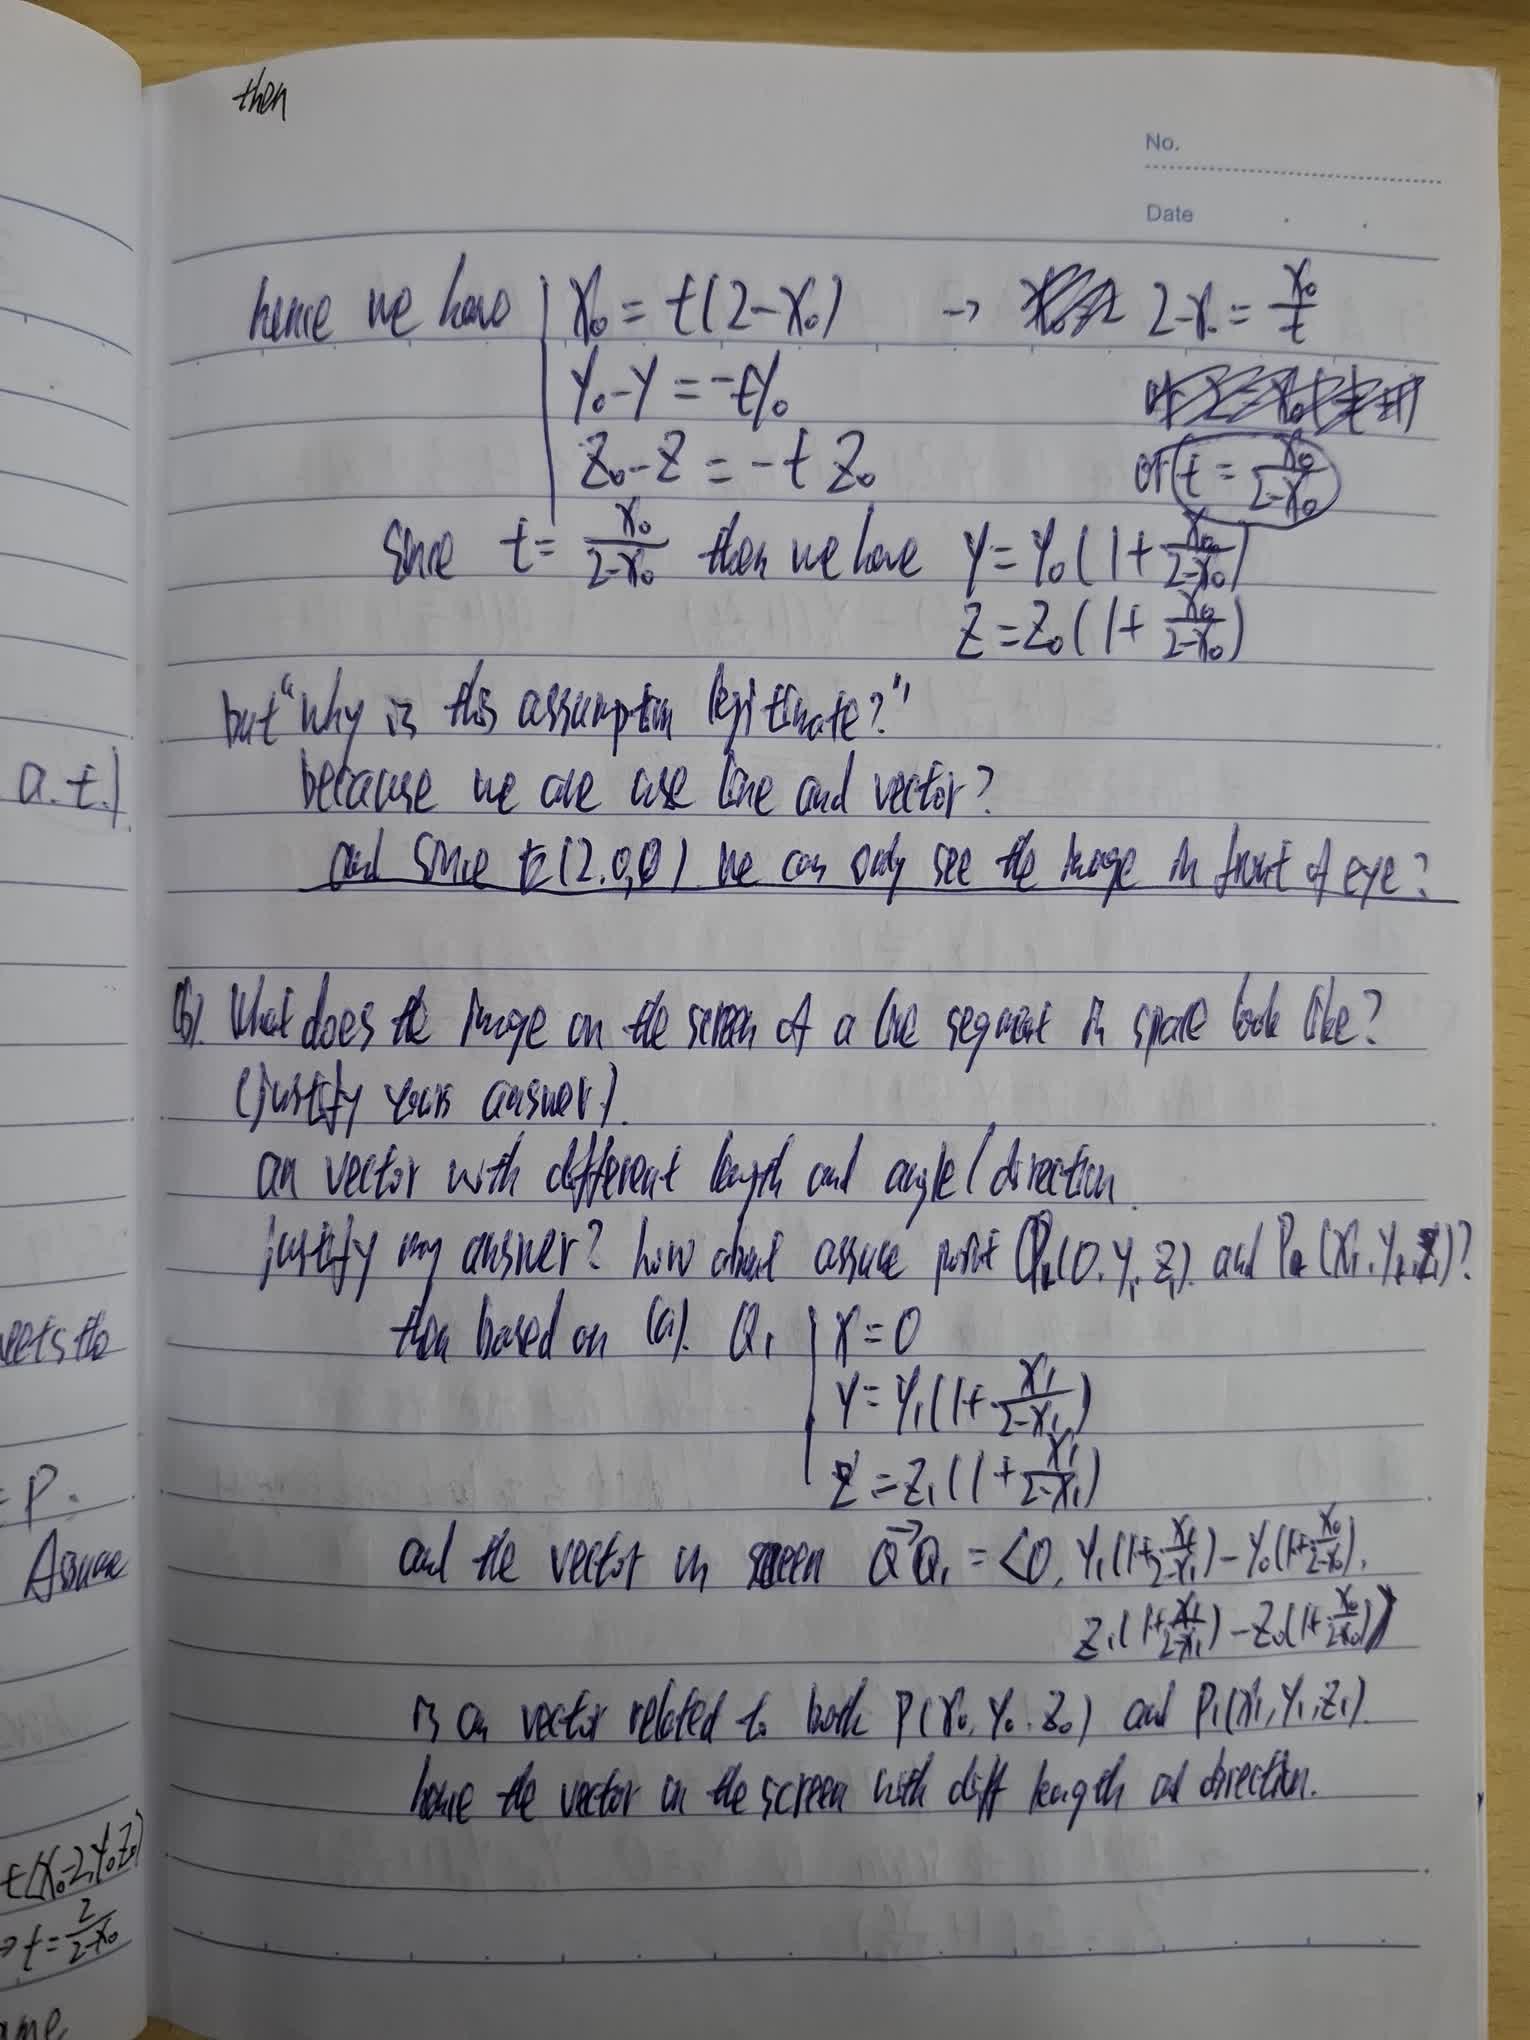 then
No.
Date
hence we have | X₀ = t(2-X₀) → 2-X₀ = X₀/t
Y₀-Y = -tY₀
Z₀-Z = -t Z₀ or t = X₀/(2-X₀)
since t = X₀/(2-X₀) then we have Y = Y₀(1+X₀/(2-X₀))
Z = Z₀(1+X₀/(2-X₀))
but "Why is this assumption legitimate?"
because we are use line and vector?
and since E(2,0,0) we can only see the image in front of eye?
(b). What does the image on the screen of a line segment in space look like?
(justify yours answer).
an vector with different length and angle/direction.
justify my answer? how about assume point Q₁(0, Y₁, Z₁) and P₁(X₁, Y₁, Z₁)?
then based on (a). Q₁ | X = 0
Y = Y₁(1+X₁/(2-X₁))
Z = Z₁(1+X₁/(2-X₁))
and the vector in screen QQ₁ = <0, Y₁(1+X₁/(2-X₁)) - Y₀(1+X₀/(2-X₀)),
Z₁(1+X₁/(2-X₁)) - Z₀(1+X₀/(2-X₀))>
is an vector related to both P(X₀, Y₀, Z₀) and P₁(X₁, Y₁, Z₁)
hence the vector in the screen with diff length and direction.
a.t.)
meets the
= P.
Assume
t(X₀-2, Y₀, Z₀)
→ t = 2/(2-X₀)